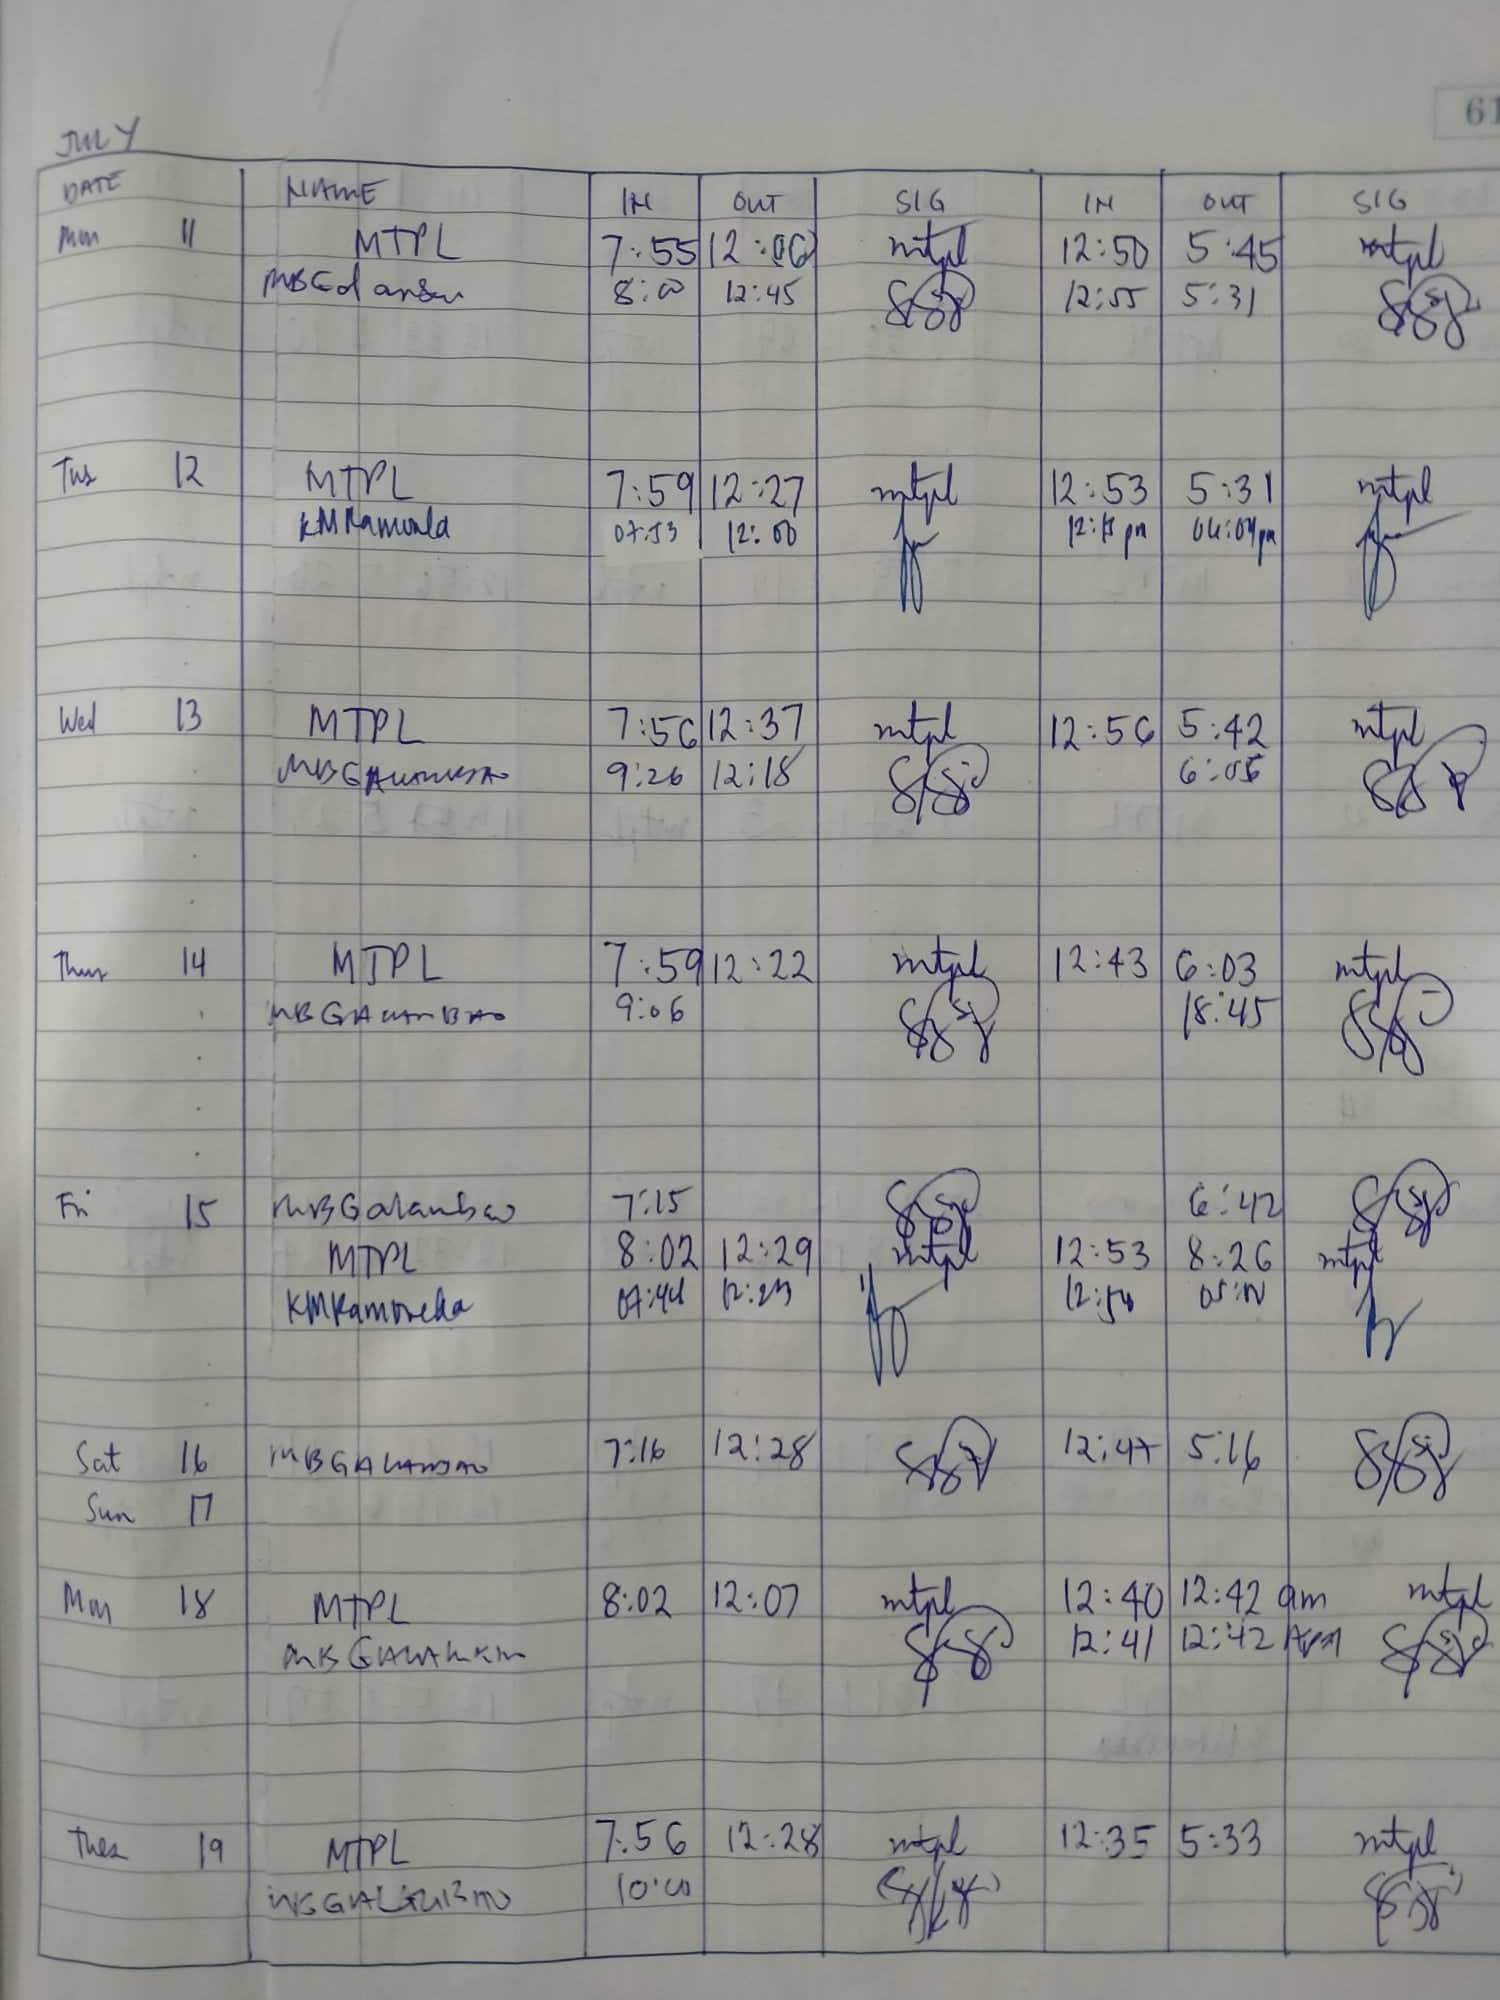 61
JULY
DATE NAME IN OUT SIG IN OUT SIG
Mon 11 MTPL 7:55 12:06 mtpl 12:50 5:45 mtpl
8:00 12:45 12:55 5:31
Tus 12 MTPL 7:59 12:27 mtpl 12:53 5:31 mtpl
KMRamoneda 07:53 12:00 pm 04:04pm
Wed 13 MTPL 7:56 12:37 mtpl 12:56 5:42 mtpl
9:26 12:18 6:05
Thur 14 MTPL 7:59 12:22 mtpl 12:43 6:03 mtpl
9:06 18:45
Fri 15 MBGalambao 7:15 6:42
MTPL 8:02 12:29 mtpl 12:53 8:26 mtpl
KMRamoneda 12:54 05:00
Sat 16 MBGALAMBAO 7:16 12:28 12:47 5:16
Sun 17
Mon 18 MTPL 8:02 12:07 mtpl 12:40 12:42 am mtpl
12:41 12:42
Thes 19 MTPL 7:56 12:28 mtpl 12:35 5:33 mtpl
10:00